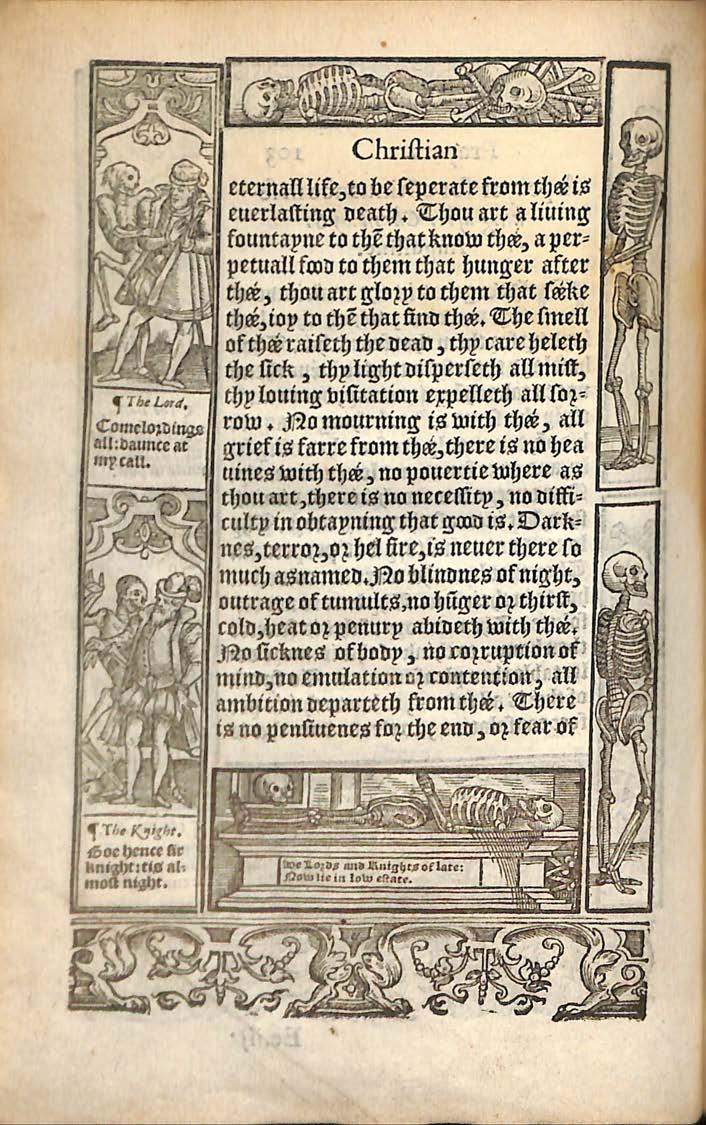 Christian
eternall life, to be seperate from thée is
euerlasting death. Thou art a liuing
fountayne to thē that know thée, a per=
petuall food to them that hunger after
thée, thou art glory to them that séeke
thée, ioy to thē that find thée. The smell
of thée raiseth the dead, thy care heleth
the sick, thy light disperseth all mist,
thy louing visitation expelleth all sor=
row. No mourning is with thée, all
grief is farre from thée, there is no hea
uines with thée, no pouertie where as
thou art, there is no necessity, no diffi=
culty in obtayning that good is. Dark=
nes, terror, or hel fire, is neuer there so
much as named. No blindnes of night,
outrage of tumults, no hūger or thirst,
cold, heat or penury abideth with thée.
No sicknes of body, no corruption of
mind, no emulation or contention, all
ambition departeth from thée. There
is no pensiuenes for the end, or fear of
¶ The Lord.
Come lordings
all: daunce at
my call.
¶ The Knight.
Goe hence sir
knight: tis al=
most night.
we Lords and Knights of late:
Now lie in low estate.